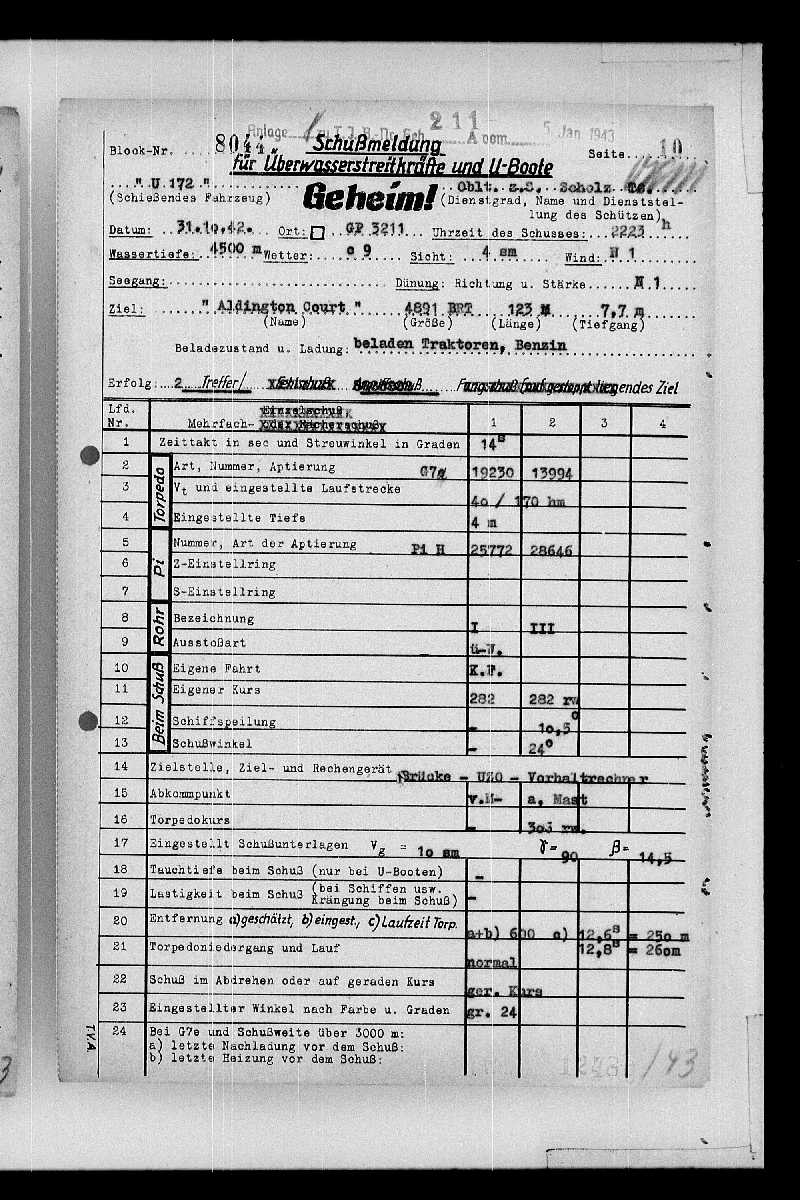 211
Anlage 1 zu T.I.B.-Nr. Geh. A vom 5. Jan 1943
Block-Nr. 8044 Schußmeldung Seite 10
für Überwasserstreitkräfte und U-Boote
" U 172 " Geheim! Oblt. z.S. Scholz
(Schießendes Fahrzeug) (Dienstgrad, Name und Dienststel-
lung des Schützen)
Datum: 31.10.42. Ort: GP 3211 Uhrzeit des Schusses: 2223 h
Wassertiefe: 4500 m Wetter: o 9 Sicht: 4 sm Wind: N 1
Seegang: Dünung: Richtung u. Stärke N 1
Ziel: " Aldington Court " 4891 BRT 123 M 7,7 m
(Name) (Größe) (Länge) (Tiefgang)
Beladezustand u. Ladung: beladen Traktoren, Benzin
Erfolg: 2 Treffer/ liegendes Ziel
Lfd. Nr. Einzelschuß
Mehrfach- oder Fächerschuß 1 2 3 4
1 Zeittakt in sec und Streuwinkel in Graden 14 s
Torpedo
2 Art, Nummer, Aptierung G7a 19230 13994
3 Vt und eingestellte Laufstrecke 40 / 170 hm
4 Eingestellte Tiefe 4 m
Pi
5 Nummer, Art der Aptierung Pi H 25772 28646
6 Z-Einstellring
7 S-Einstellring
Rohr
8 Bezeichnung I III
9 Ausstoßart ü-W.
Beim Schuß
10 Eigene Fahrt K.F.
11 Eigener Kurs 282 282 rw
12 Schiffspeilung - 10,5°
13 Schußwinkel - 24°
14 Zielstelle, Ziel- und Rechengerät Brücke - UZO - Vorhaltrechner
15 Abkommpunkt v.M- a, Mast
16 Torpedokurs - 303 rw.
17 Eingestellt Schußunterlagen Vg = 10 sm γ= 90 β= 14,5
18 Tauchtiefe beim Schuß (nur bei U-Booten) -
19 Lastigkeit beim Schuß (bei Schiffen usw. Krängung beim Schuß) -
20 Entfernung a) geschätzt, b) eingest., c) Laufzeit Torp. a+b) 600 c) 12,6 s = 250 m
12,8 s = 260m
21 Torpedoniedergang und Lauf normal
22 Schuß im Abdrehen oder auf geraden Kurs ger. Kurs
23 Eingestellter Winkel nach Farbe u. Graden gr. 24
24 Bei G7e und Schußweite über 3000 m:
a) letzte Nachladung vor dem Schuß:
b) letzte Heizung vor dem Schuß:
T.V.A.
/43